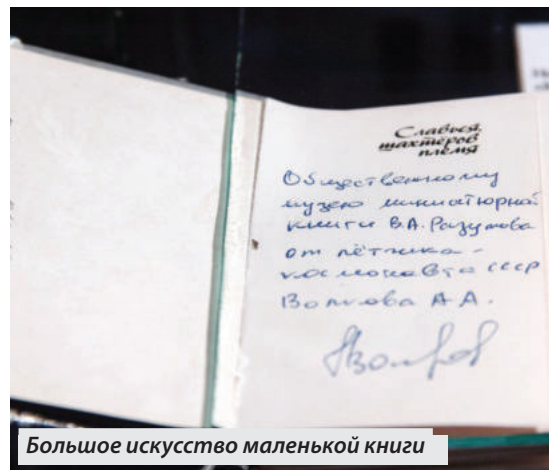 Славься,
шахтёров
племя
Общественному
музею миниатюрной
книги В.А. Разумова
от лётчика-
космонавта СССР
Волкова А А.
АВолков
Большое искусство маленькой книги